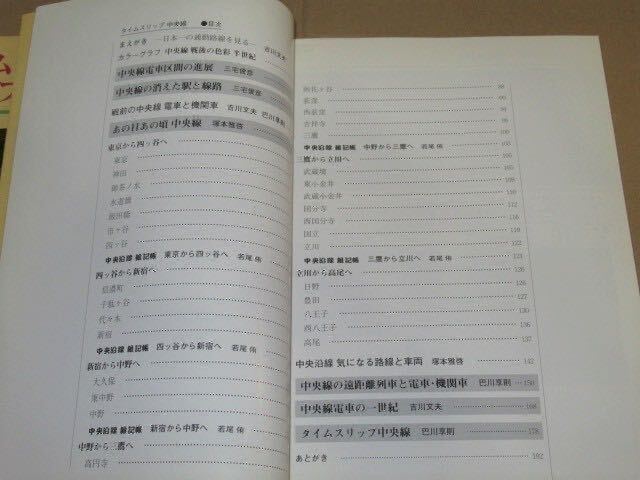 タイムスリップ 中央線 ●目次
まえがき ―日本一の通勤路線を見る― 吉川文夫
カラーグラフ 中央線 戦後の色彩 半世紀
中央線電車区間の進展 三宅俊彦
中央線の消えた駅と線路 三宅俊彦
戦前の中央線 電車と機関車 吉川文夫 巴川享則
あの日あの頃 中央線 塚本雅啓
東京から四ッ谷へ
東京
神田
御茶ノ水
水道橋
飯田橋
市ヶ谷
四ッ谷
中央沿線 雑記帳 東京から四ッ谷へ 若尾 侑
四ッ谷から新宿へ
信濃町
千駄ヶ谷
代々木
新宿
中央沿線 雑記帳 四ッ谷から新宿へ 若尾 侑
新宿から中野へ
大久保
東中野
中野
中央沿線 雑記帳 新宿から中野へ 若尾 侑
中野から三鷹へ
高円寺
阿佐ヶ谷 88
荻窪 90
西荻窪
吉祥寺
三鷹
中央沿線 雑記帳 中野から三鷹へ 若尾 侑
三鷹から立川へ 105
武蔵境
東小金井
武蔵小金井 110
国分寺
西国分寺 116
国立
立川
中央沿線 雑記帳 三鷹から立川へ 若尾 侑 123
立川から高尾へ
日野 126
豊田
八王子 130
西八王子
高尾 137
中央沿線 気になる路線と車両 塚本雅啓 142
中央線の遠距離列車と電車・機関車 巴川享則 150
中央線電車の一世紀 吉川文夫 168
タイムスリップ中央線 巴川享則 178
あとがき 192